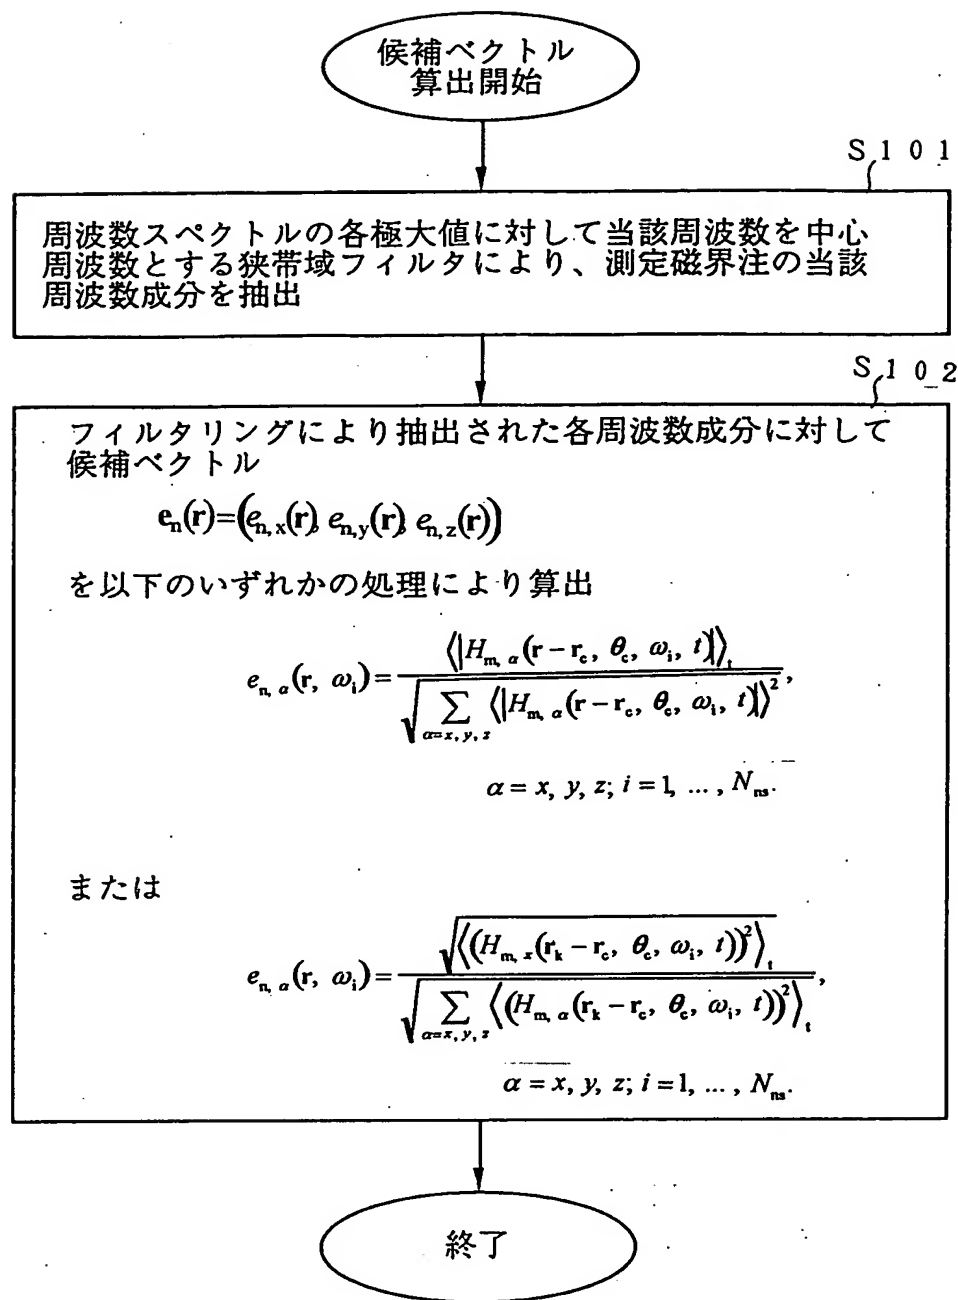 候補ベクトル
算出開始
S101
周波数スペクトルの各極大値に対して当該周波数を中心
周波数とする狭帯域フィルタにより、測定磁界注の当該
周波数成分を抽出
S102
フィルタリングにより抽出された各周波数成分に対して
候補ベクトル
e_n(r)=(e_{n,x}(r), e_{n,y}(r), e_{n,z}(r))
を以下のいずれかの処理により算出
e_{n,α}(r, ω_i)=⟨|H_{m,α}(r−r_c, θ_c, ω_i, t)|⟩_t / √(∑_{α=x,y,z}⟨|H_{m,α}(r−r_c, θ_c, ω_i, t)|⟩²),
α=x, y, z; i=1, ..., N_{ns}.
または
e_{n,α}(r, ω_i)=√⟨(H_{m,x}(r_k−r_c, θ_c, ω_i, t))²⟩_t / √(∑_{α=x,y,z}⟨(H_{m,α}(r_k−r_c, θ_c, ω_i, t))²⟩_t),
α=x, y, z; i=1, ..., N_{ns}.
終了